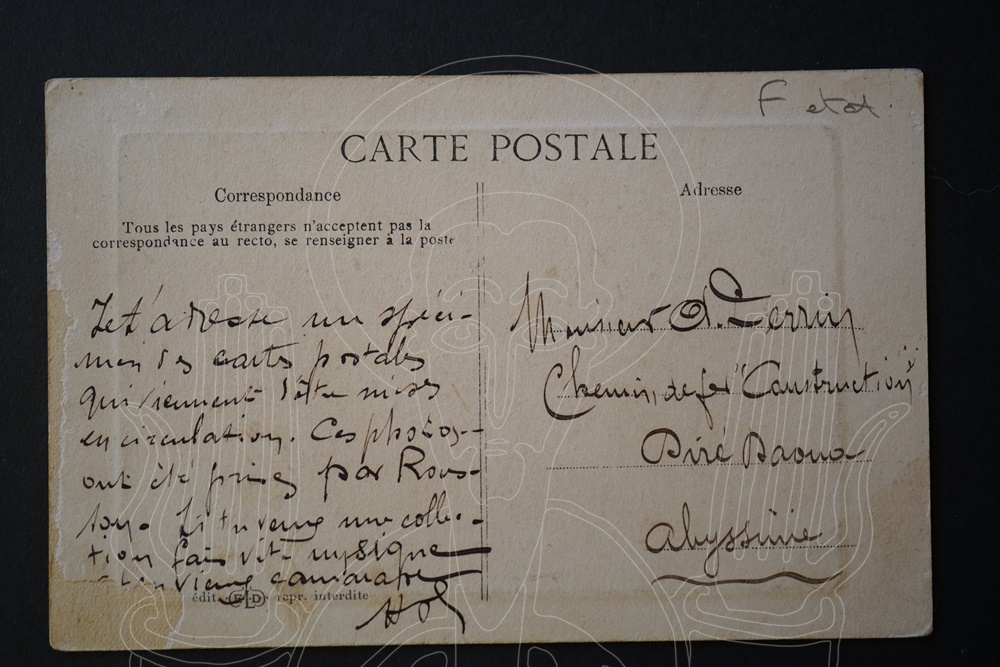 F etat.
CARTE POSTALE
Correspondance
Tous les pays étrangers n'acceptent pas la
correspondance au recto, se renseigner à la poste
Je t'adresse un spéci-
men des cartes postales
qui viennent d'être mises
en circulation. Ces photos
ont été prises par Rous-
son. Si tu veux une collec-
tion fais vite
ton vieux camarade
édit. ELD repr. interdite
Adresse
Monsieur A. Perrin
Chemin, de fer "Construction"
Diré Daoua
Abyssinie